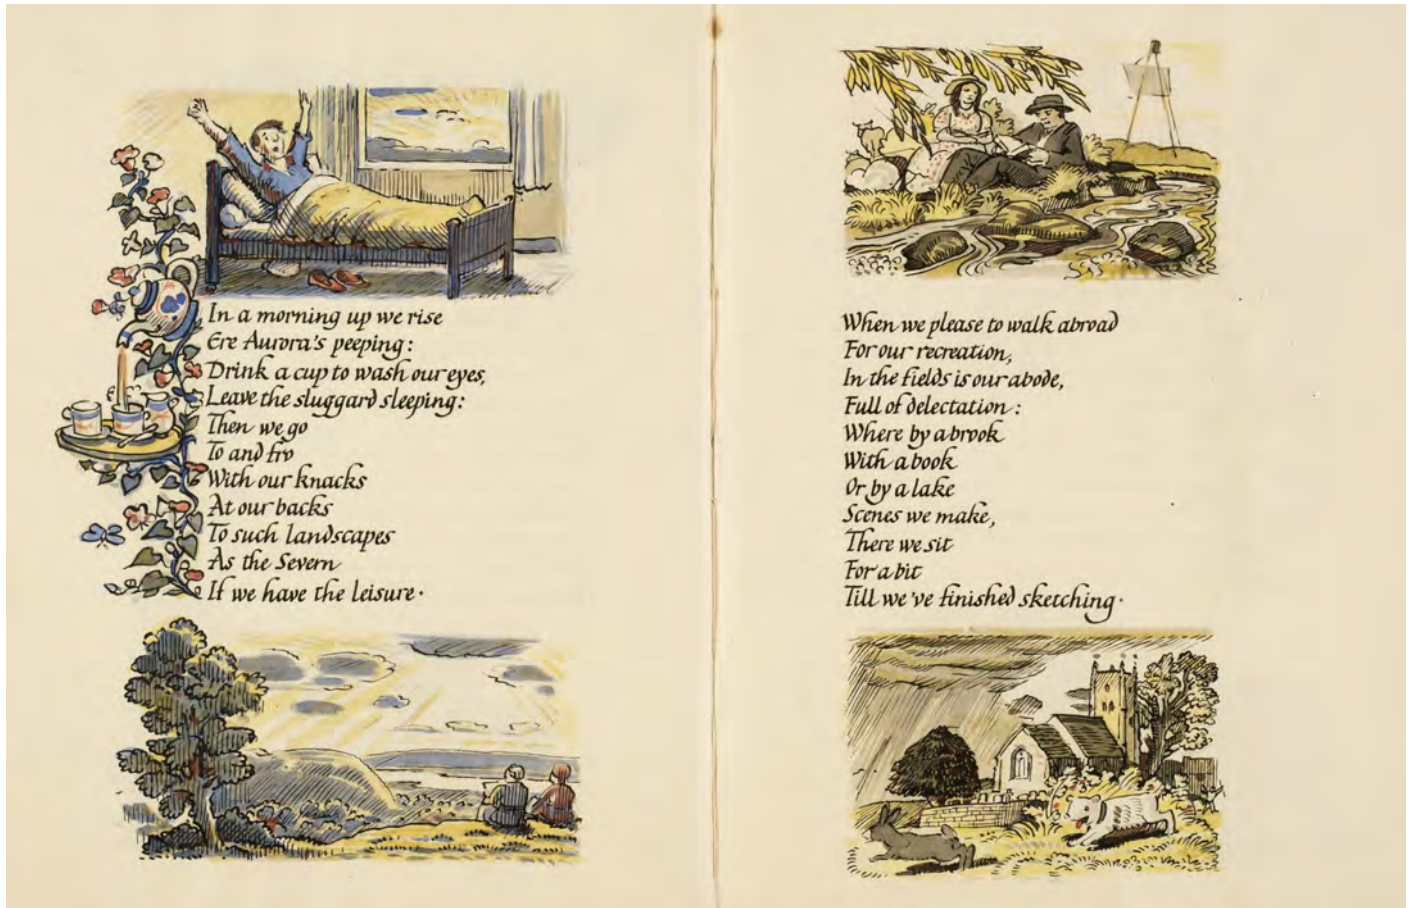 In a morning up we rise
Ere Aurora's peeping:
Drink a cup to wash our eyes,
Leave the sluggard sleeping:
Then we go
To and fro
With our knacks
At our backs
To such landscapes
As the Severn
If we have the leisure.
When we please to walk abroad
For our recreation,
In the fields is our abode,
Full of delectation:
Where by a brook
With a book
Or by a lake
Scenes we make,
There we sit
For a bit
Till we've finished sketching.